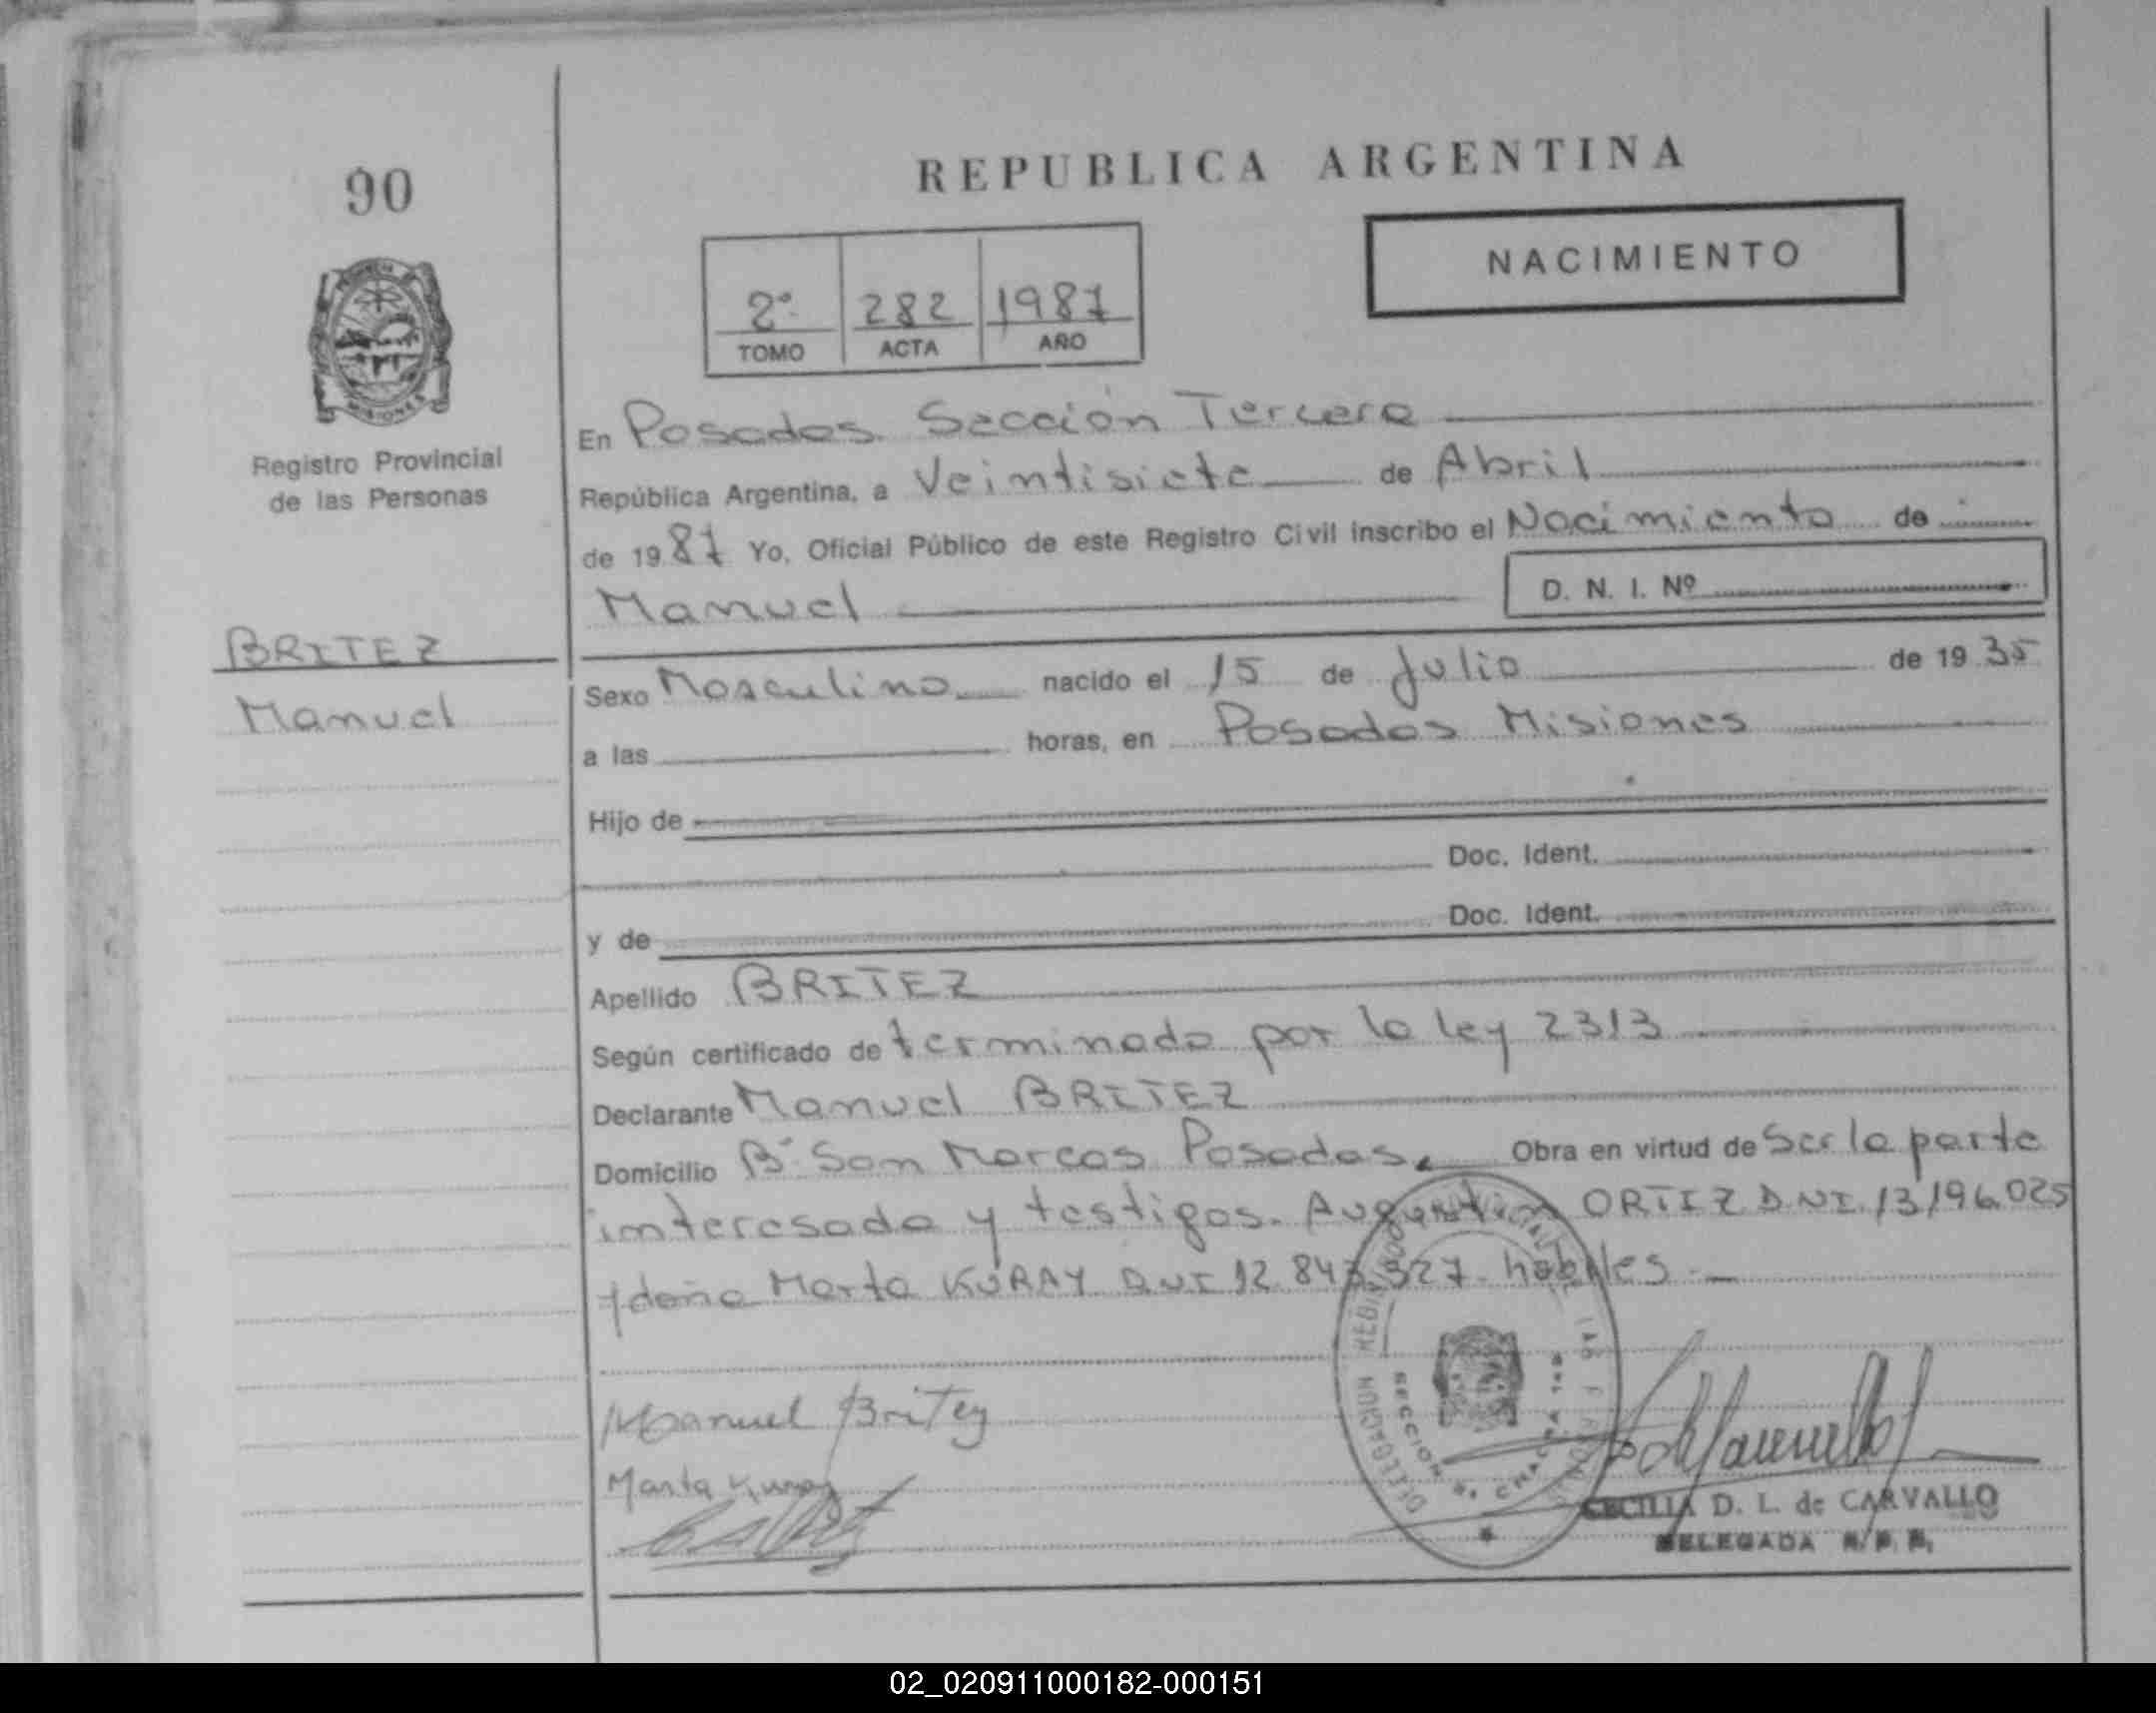 90
REPUBLICA ARGENTINA
NACIMIENTO
2º 282 1987
TOMO ACTA AÑO
Registro Provincial
de las Personas
En Posadas Sección Tercera
República Argentina, a Veintisiete de Abril
de 1987 Yo, Oficial Público de este Registro Civil inscribo el Nacimiento de
Manuel
D. N. I. Nº
BRITEZ
Manuel
Sexo Masculino nacido el 15 de Julio de 1935
a las horas, en Posadas Misiones
Hijo de
Doc. Ident.
y de Doc. Ident.
Apellido BRITEZ
Según certificado determinado por la ley 2313
Declarante Manuel BRITEZ
Domicilio Bº San Marcos Posadas. Obra en virtud de Ser la parte
interesada y testigos. Augustin ORTIZ D.NI. 13196.025
y doña Marta KURAY DNI 12.843.327 habiles
Manuel Britez
Marta Kuray
DELEGACION
SECCION
CECILIA D. L. de CARVALLO
DELEGADA R. P. P.
02_020911000182-000151